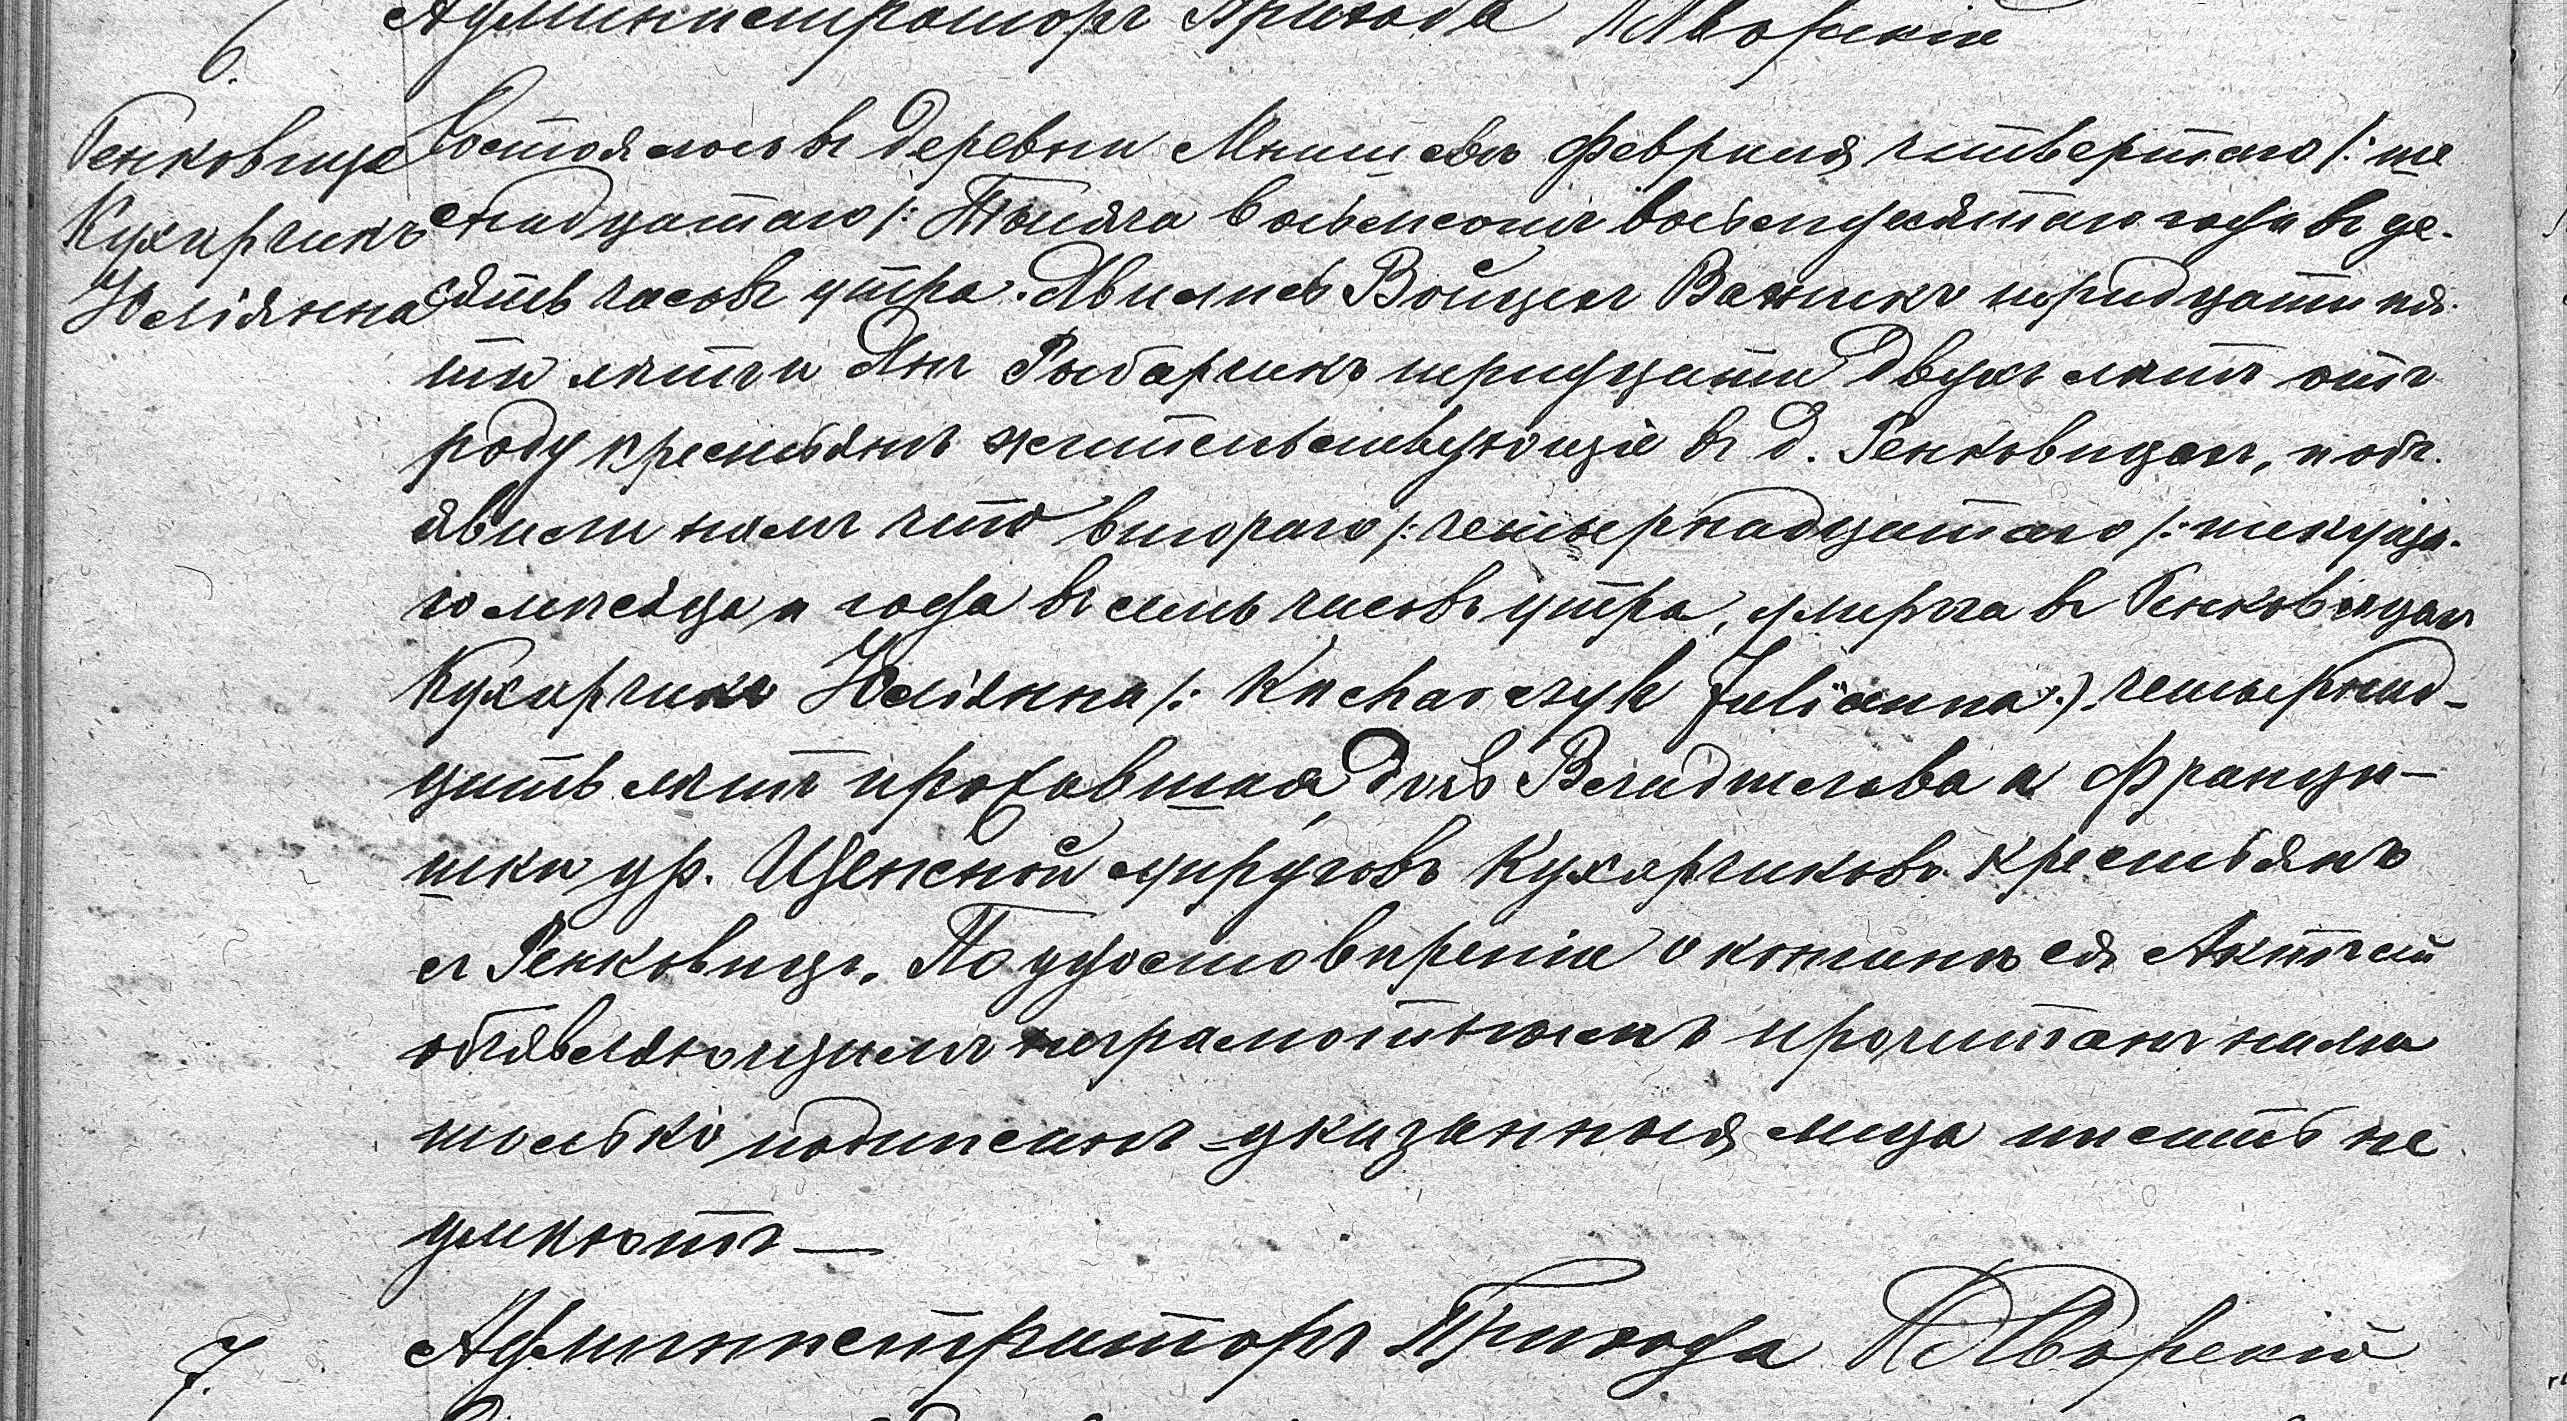 Администраторъ Прихода Яворскій
6.
Ренковице
Кухарчикъ
Юліянна
Состоялось въ деревни Мнишекъ Февраля четвертаго /: ше
снадцатаго /: Тысяча восемсотъ восемдесятаго года въ де-
сять часовъ утра. Явились Войцех Важникъ тридцати пя-
ти лѣтъ и Янъ Рыбарчикъ тридцати двухъ лѣтъ отъ
роду крестьянъ жительствующіе въ д. Ренковицах, и объ-
явили намъ что втораго /: четырнадцатаго /: текуща-
го мѣсяца и года въ семь часовъ утра, умерла въ Ренковицахъ
Кухарчикъ Юліянна /: Kucharczyk Julianna :/. четырнад-
цать лѣтъ дочь Владислава и Францы-
шки ур. супруговъ Кухарчиковъ крестьянъ
съ Ренковицъ. По удостовѣреніи о кончинѣ ея Актъ сей
объявляющимъ неграмотнымъ прочитанъ нами
только подписанъ указанныя лица писать не
умѣютъ —
Администраторъ Прихода Яворскій
7.